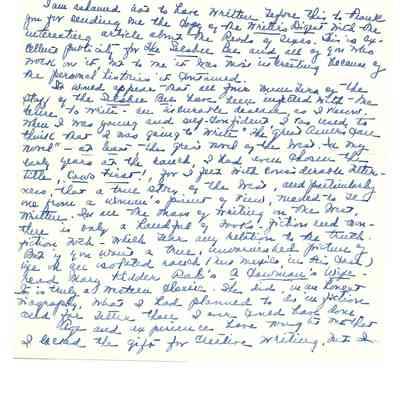 I am ashamed not to have written before this to thank
you for sending me the copy of the Writer's Digest with the
interesting article about the Rev. of Texas. This is ex-
cellent publicity for the Silsbee Bee and all of you who
work on it, but to me it was most interesting because of
the personal histories it contained.
It would appear that all four members of the
staff of the Silsbee Bee have been infected with the
desire to write - an incurable disease as I know.
When I was young and self-confident I too used to
think that I was going to write "the great American
novel" - at least the great novel of the West. In my
early years at the ranch, I had even chosen the
title, "Cows First!", for I felt with considerable
that a true story of the West, and particularly
one from a woman's point of view, needed to be
written. In all the mass of writing on the West,
there is only a handful of books, fiction and non-
fiction both - which bear any relation to the truth.
But if you want a true, unvarnished picture of
life on an isolated ranch (New Mexico in this case)
read Mary Kidder Rak's A Cowman's Wife.
It is truly a western classic. She did, in an honest
biography, what I had planned to do in fiction
and far better than I ever could have done.
Age and experience have to
I lacked the gift for creative writing, but I